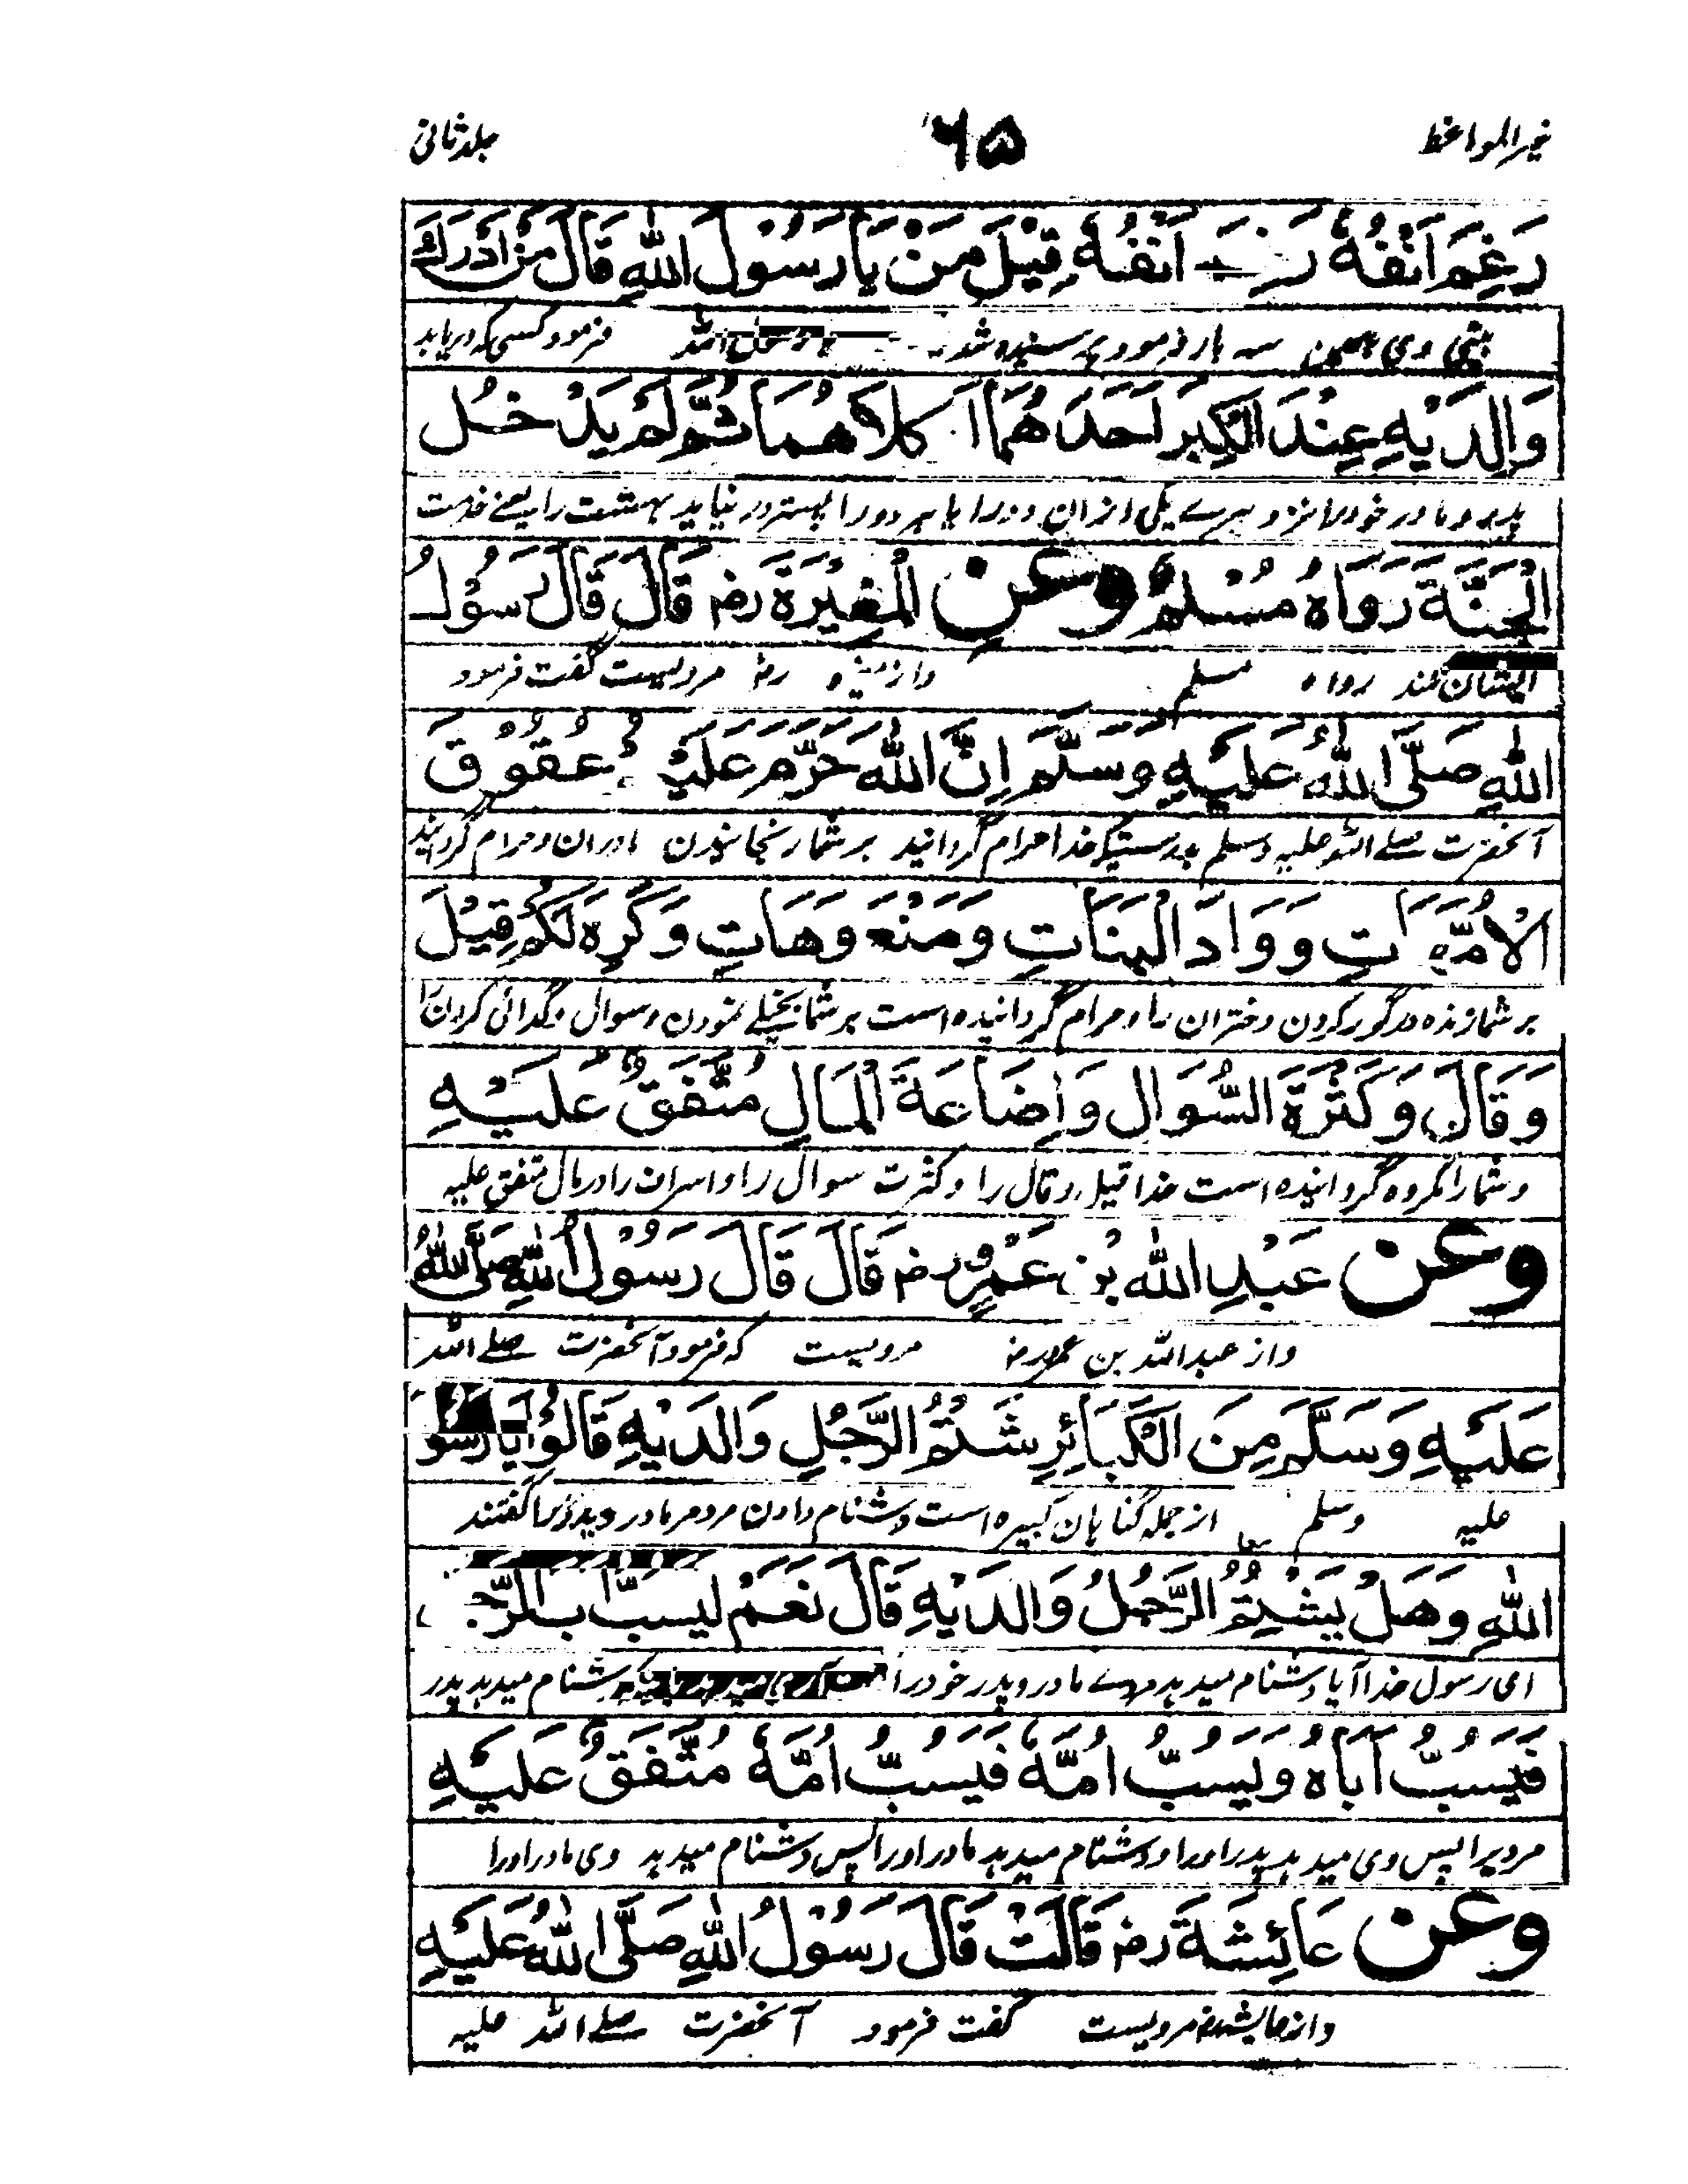 خیر المواعظ ۶۵ جلد ثانی
رَغِمَ اَنْفُهٗ اَنْفُهٗ قِيْلَ مَنْ يَا رَسُوْلَ اللهِ قَالَ مَنْ اَدْرَكَ
بینی وی سه بار پرسیده شد رسول الله فرمود کسی که دریابد
وَالِدَيْهِ عِنْدَ الْكِبَرِ اَحَدَهُمَا كِلَاهُمَا ثُمَّ لَمْ يَدْخُلِ
پدر و مادر خود را نزد پیرے یکی ازان دو را یا هر دو را پستر در نیاید بهشت را یعنے خدمت
الْجَنَّةَ رَوَاهُ مُسْلِمٌ وَعَنِ الْمُغِيْرَةَ رض قَالَ قَالَ رَسُوْلُ
ایشان کند رواه مسلم و از مغیره رض مرویست گفت فرمود
اللهِ صَلَّى اللهُ عَلَيْهِ وَسَلَّمَ اِنَّ اللهَ حَرَّمَ عَلَيْكُمْ عُقُوْقَ
آنحضرت صلے الله علیه وسلم بدرستیکه خدا حرام گردانید بر شما رنجانیدن مادران و حرام گردانید
الْاُمَّهَاتِ وَوَادَ الْبَنَاتِ وَمَنْعَ وَهَاتِ وَكَرِهَ لَكُمْ قِيْلَ
بر شما زنده در گور کردن دختران را و حرام گردانیده است بر شما بخیلے نمودن و سوال و گدائی کردن را
وَقَالَ وَكَثْرَةَ السُّوَالِ وَاِضَاعَةَ الْمَالِ مُتَّفَقٌ عَلَيْهِ
و شما را مکروه گردانیده است خدا قیل و قال را و کثرت سوال را و اسراف را در مال متفق علیه
وَعَنْ عَبْدِ اللهِ بْنِ عَمْرٍو رض قَالَ قَالَ رَسُوْلُ اللهِ صَلَّى اللهُ
و از عبدالله بن عمرو رض مرویست که فرمود آنحضرت صلے الله
عَلَيْهِ وَسَلَّمَ مِنَ الْكَبَائِرِ شَتْمُ الرَّجُلِ وَالِدَيْهِ قَالُوْا يَا رَسُوْ
علیه وسلم از جمله گناهان کبیره است دشنام دادن مرد مر مادر و پدر را گفتند
اللهِ وَهَلْ يَشْتِمُ الرَّجُلُ وَالِدَيْهِ قَالَ نَعَمْ يَسُبُّ اَبَا الرَّجُلِ
ای رسول خدا آیا دشنام میدهد مردے مادر و پدر خود را دشنام میدهد پدر
فَيَسُبُّ اَبَاهُ وَيَسُبُّ اُمَّهٗ فَيَسُبُّ اُمَّهٗ مُتَّفَقٌ عَلَيْهِ
مرد یرا پس وی میدهد پدر او را و دشنام میدهد مادر او را پس دشنام میدهد وی مادر او را
وَعَنْ عَائِشَةَ رض قَالَتْ قَالَ رَسُوْلُ اللهِ صَلَّى اللهُ عَلَيْهِ
و از عایشه رض مرویست گفت فرمود آنحضرت صلے الله علیه